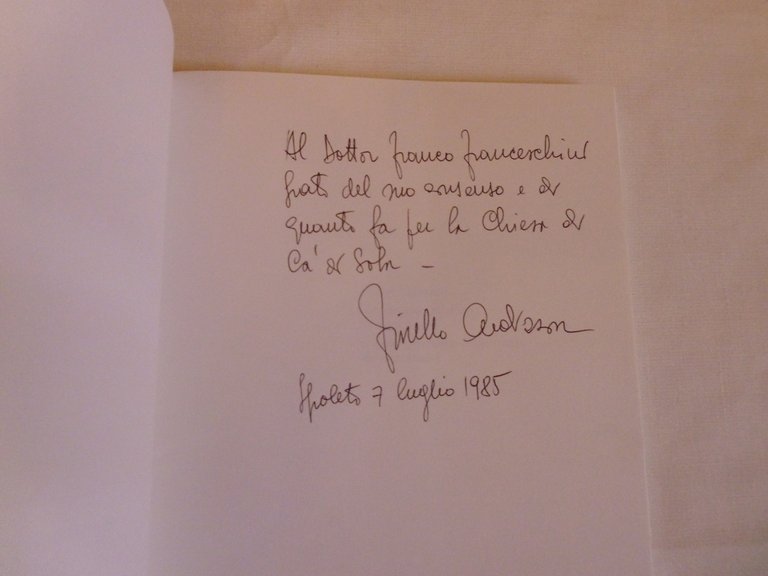 Al Dottor Franco Franceschini
grato del suo consenso e di
quanto fa per la Chiesa di
Ca' di Sola –
Spoleto 7 luglio 1985